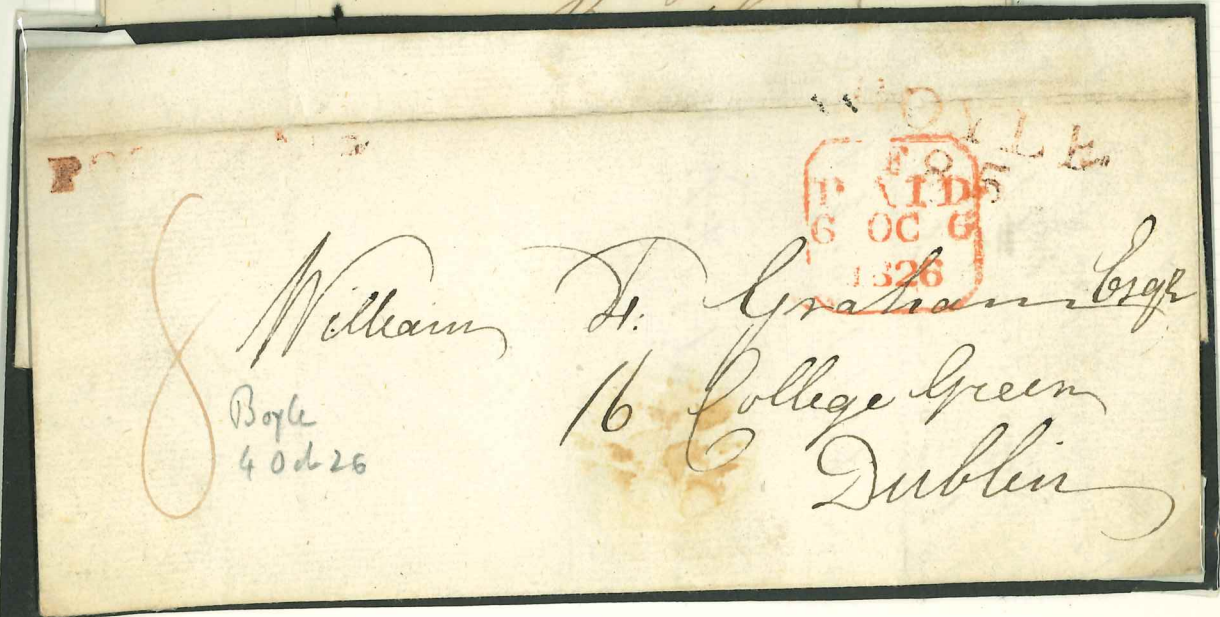 OYLE
85
PAID
6 OC 6
1826
8
William F. Graham Esqr
16 College Green
Dublin
Boyle
4 Oct 26